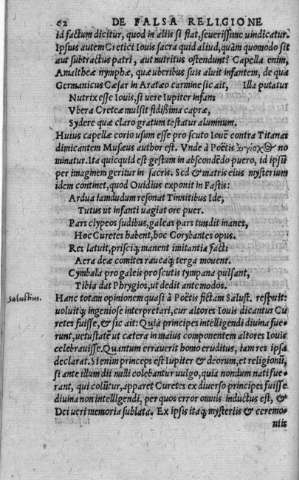 62 DE FALSA RELIGIONE
id factum dicitur, quod in aliis si fiat, seuerissime uindicatur.
Ipsius autem Cretici Iouis sacra quid aliud, quàm quomodo sit
aut subtractus patri, aut nutritus ostendunt? Capella enim,
Amaltheæ nymphæ, quæ uberibus suis aluit infantem, de qua
Germanicus Cæsar in Aratæo carmine sic ait, Illa putatur
Nutrix esse Iouis, si uere Iupiter infans
Vbera Cretææ mulsit fidissima capræ,
Sydere quæ claro gratum testatur alumnum.
Huius capellæ corio usum esse pro scuto Iouē contra Titanas
dimicantem Museus author est. Vnde à Poëtis αἰγίοχος no
minatur. Ita quicquid est gestum in abscondēdo puero, id ipsū
per imaginem geritur in sacris. Sed & matris eius mysterium
idem continet, quod Ouidius exponit in Fastis:
Ardua iamdudum resonat Tinnitibus Ide,
Tutus ut infanti uagiat ore puer.
Pars clypeos sudibus, galeas pars tundit inanes,
Hoc Curetes habent, hoc Corybantes opus.
Res latuit, priscíq; manent imitantia facti
Aera deæ comites raucáq; terga mouent.
Cymbala pro galeis pro scutis tympana pulsant,
Tibia dat Phrygios, ut dedit ante modos.
Salustius. Hanc totam opinionem quasi à Poëtis fictam Salust. respuit:
uoluitq; ingeniose interpretari, cur altores Iouis dicantur Cu
retes fuisse, & sic ait: Quia principes intelligendi diuina fue-
runt, uetustatē ut cætera in maius componentem altores Iouis
celebrauisse. Quantum errauerit homo eruditus, iam res ipsa
declarat. Si enim princeps est Iupiter & deorum, et religionū,
si ante illum dii nulli colebantur uulgo, quia nondum nati fue-
rant, qui colūtur, apparet Curetes ex diuerso principes fuisse
diuina non intelligendi, per quos error omnis inductus est, &
Dei ueri memoria sublata. Ex ipsis itaq; mysteriis & ceremo-
niis